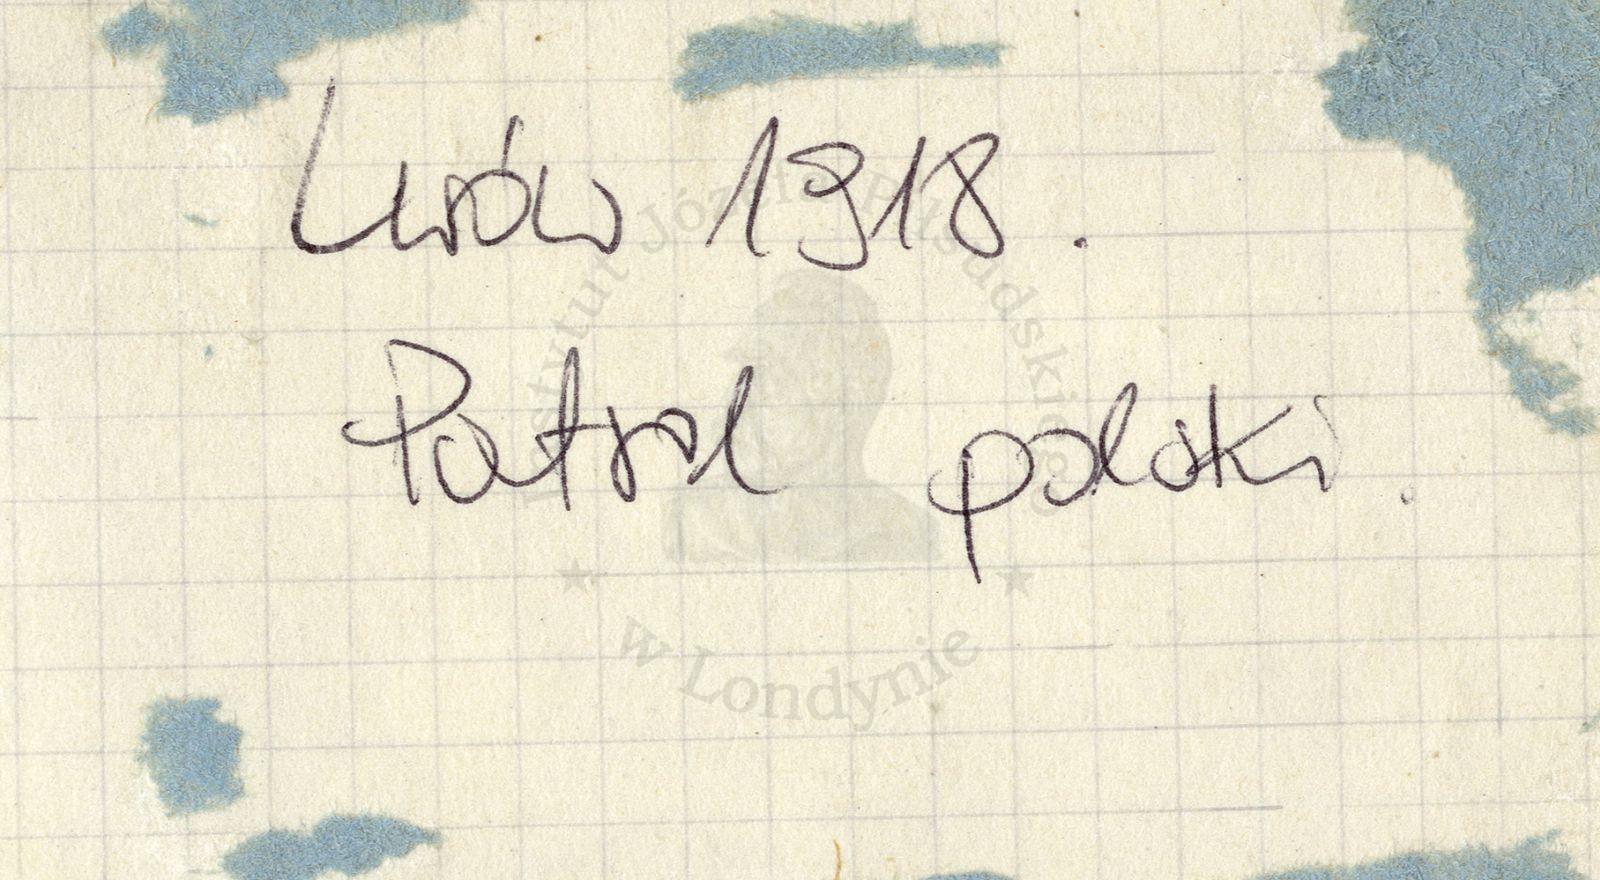 Lwów 1918.
Patrol polski.
Instytut Józefa Piłsudskiego
w Londynie